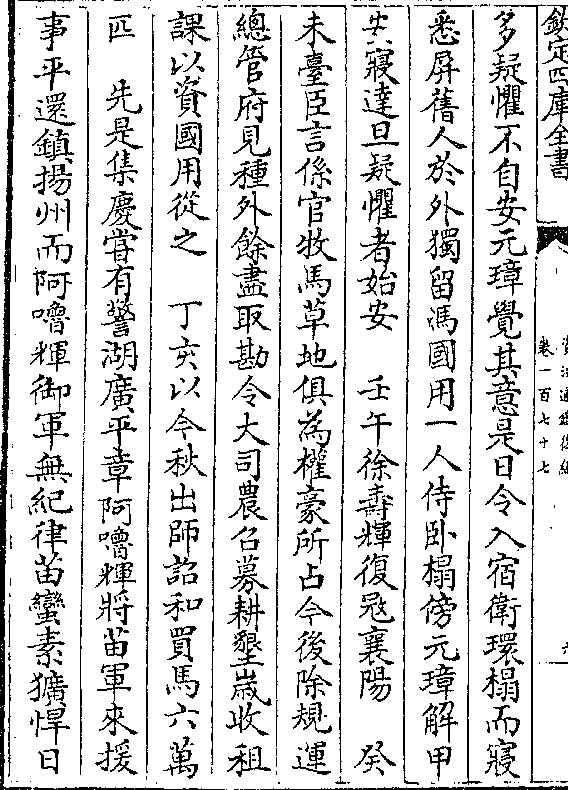 欽定四庫全書
卷一百七十七
多疑懼不自安元璋覺其意是日令入宿衛環榻而寢
悉屏舊人於外獨留馮國用一人侍卧榻傍元璋解甲
安寢達旦疑懼者始安　壬午徐壽輝復㓂襄陽　癸
未臺臣言係官牧馬草地俱為權豪所占今後除規運
總管府見種外餘盡取勘令大司農召募耕墾歲收租
課以資國用從之　丁亥以今秋出師詔和買馬六萬
匹　先是集慶嘗有警湖廣平章阿嚕輝將苗軍來援
事平還鎮揚州而阿嚕輝御軍無紀律苗蠻素獷悍日